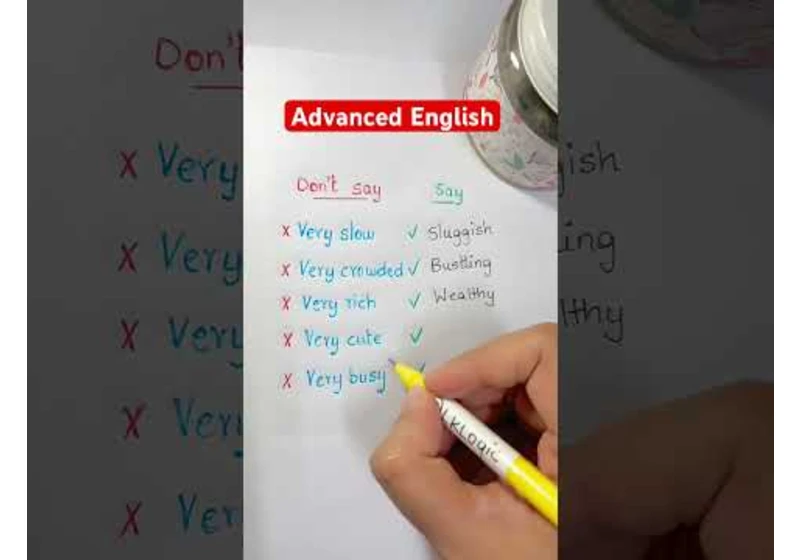 Advanced English
Don't say Say
x Very slow ✓ Sluggish
x Very crowded ✓ Bustling
x Very rich ✓ Wealthy
x Very cute ✓
x Very busy ✓